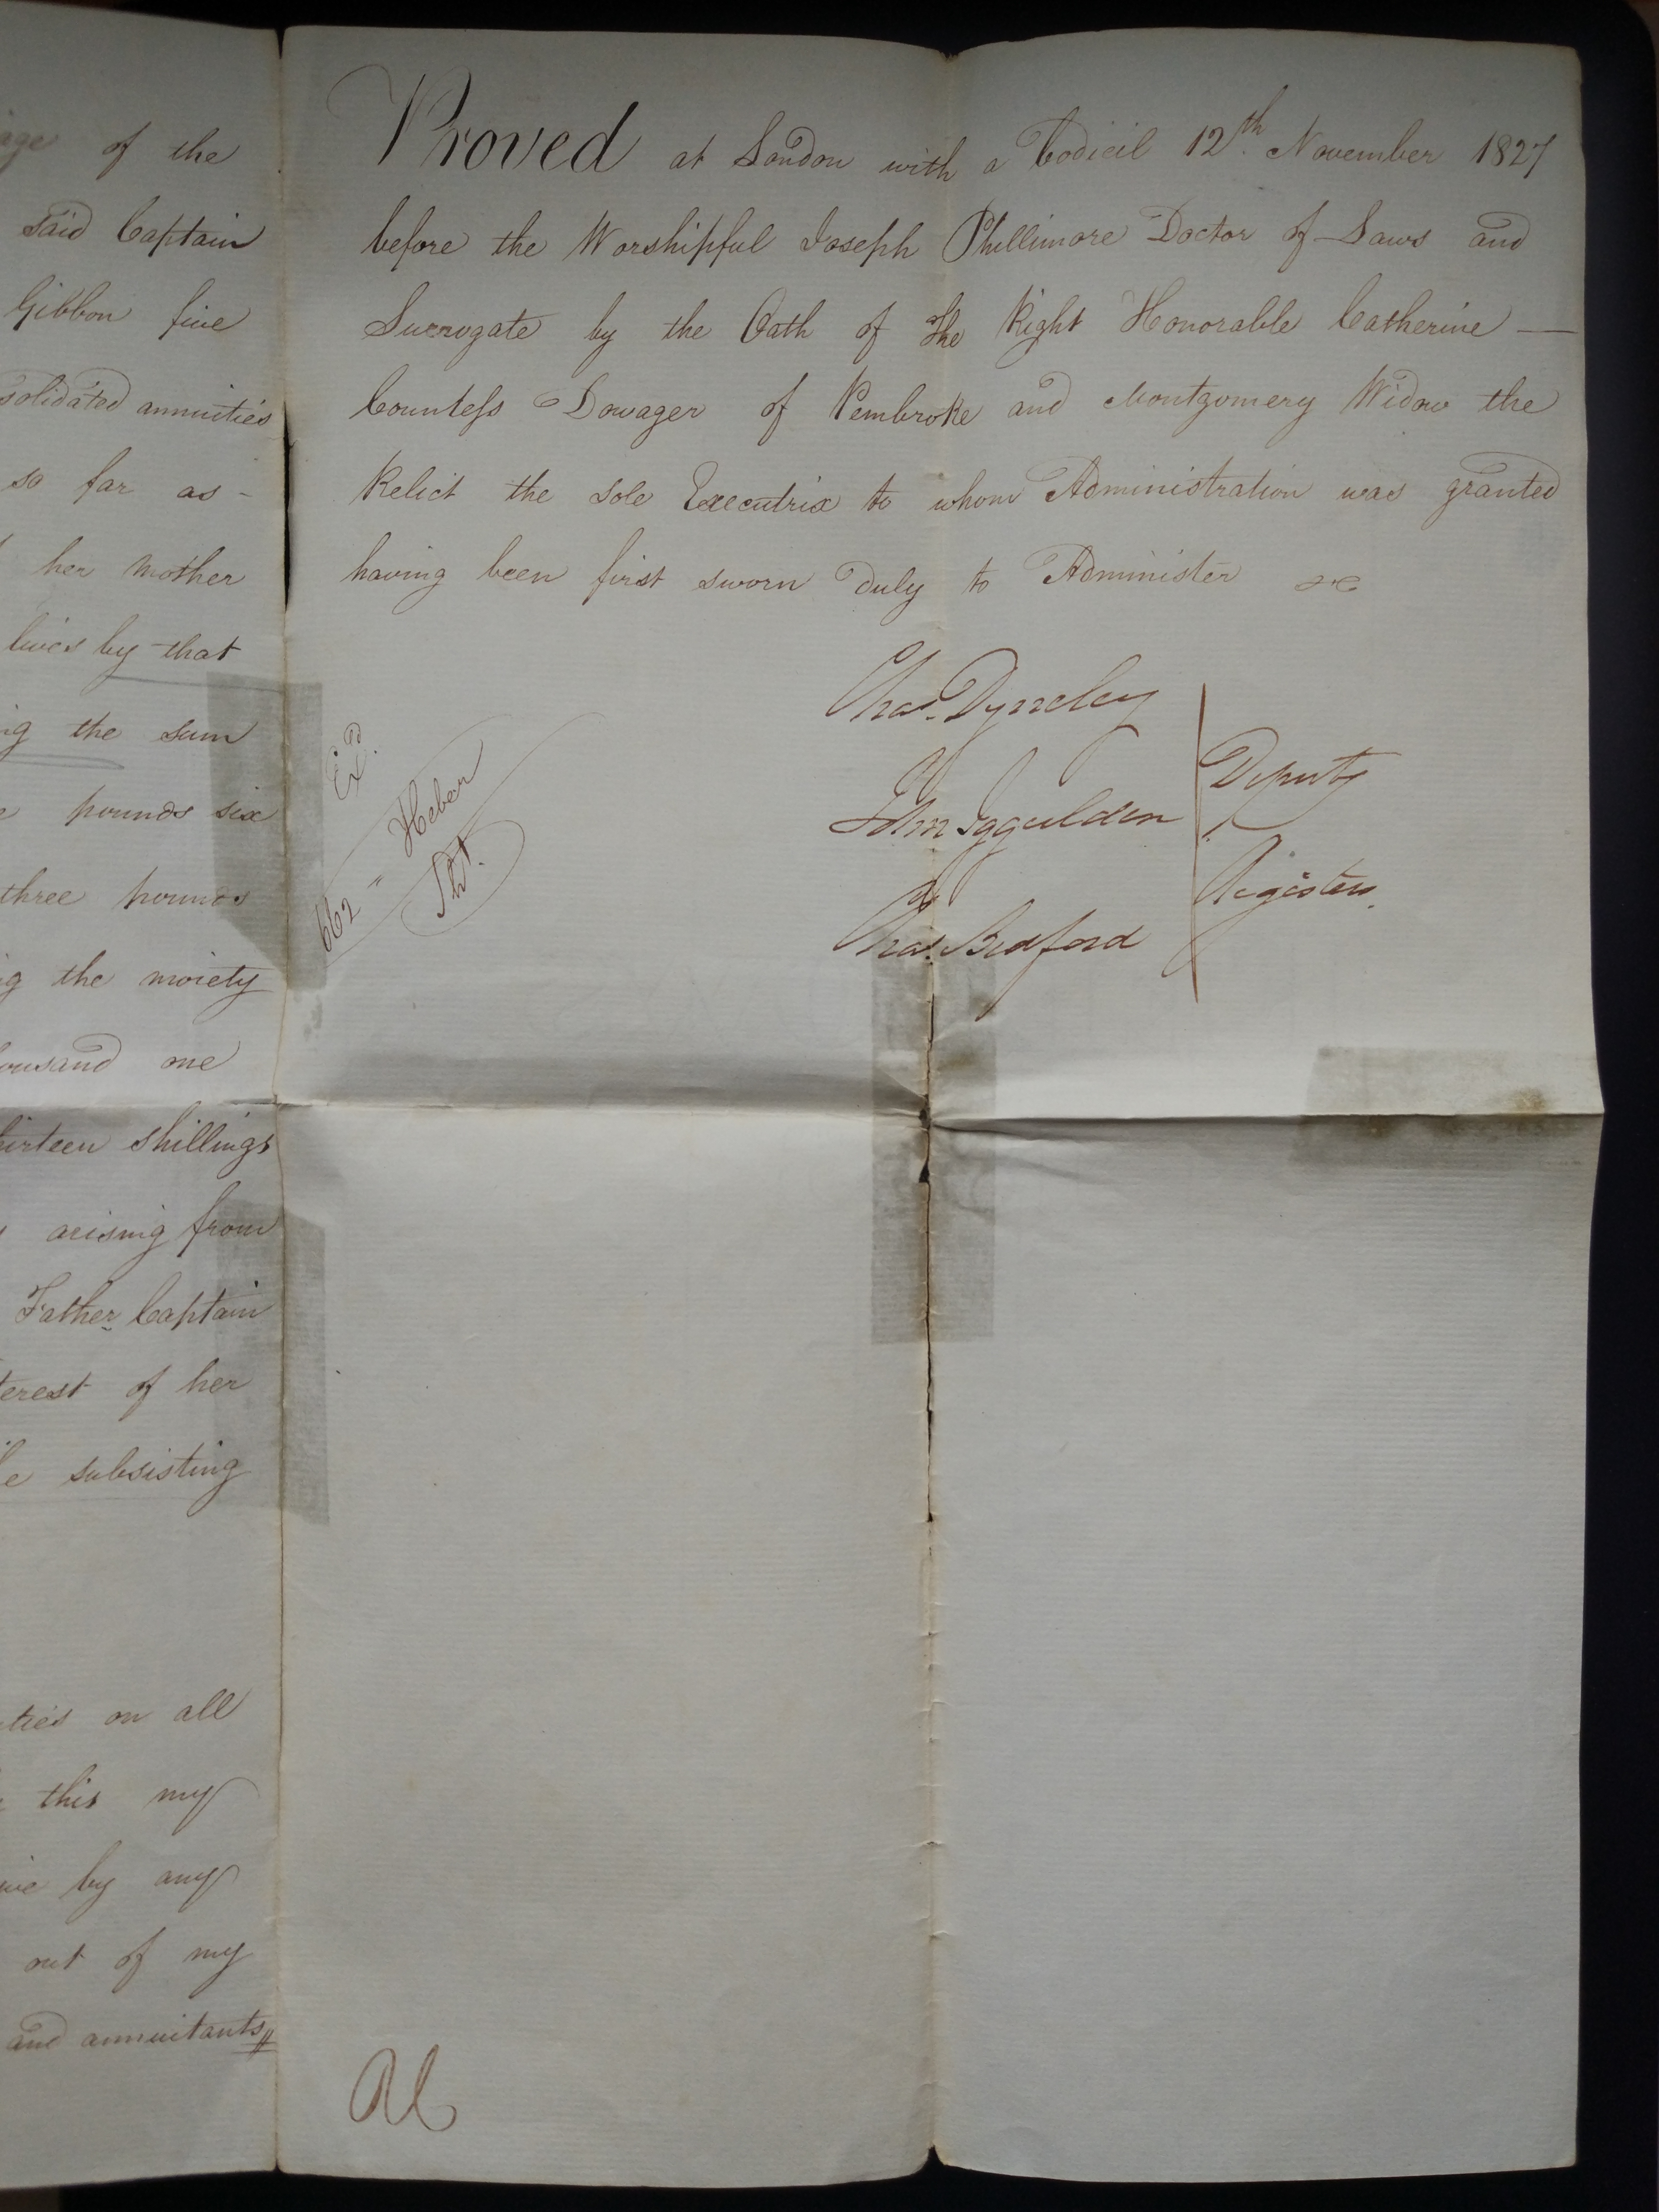 of the
said Captain
Gibbon five
solidated annuities
so far as -
her Mother
lives by that
the sum
pounds six
three pounds
the moiety
ousand one
irteen shillings
arising from
Father Captain
erest of her
subsisting
ties on all
this my
by any
out of my
and annuitants
Proved at London with a Codicil 12th November 1827
before the Worshipful Joseph Phillimore Doctor of Laws and
Surrogate by the Oath of The Right Honorable Catherine —
Countess Dowager of Pembroke and Montgomery Widow the
Relict the sole Executrix to whom Administration was granted
having been first sworn duly to Administer &c
Chas. Dyneley
John Iggulden
Chas. Bedford
Deputy
Registers.
Exd.
662 " Heber